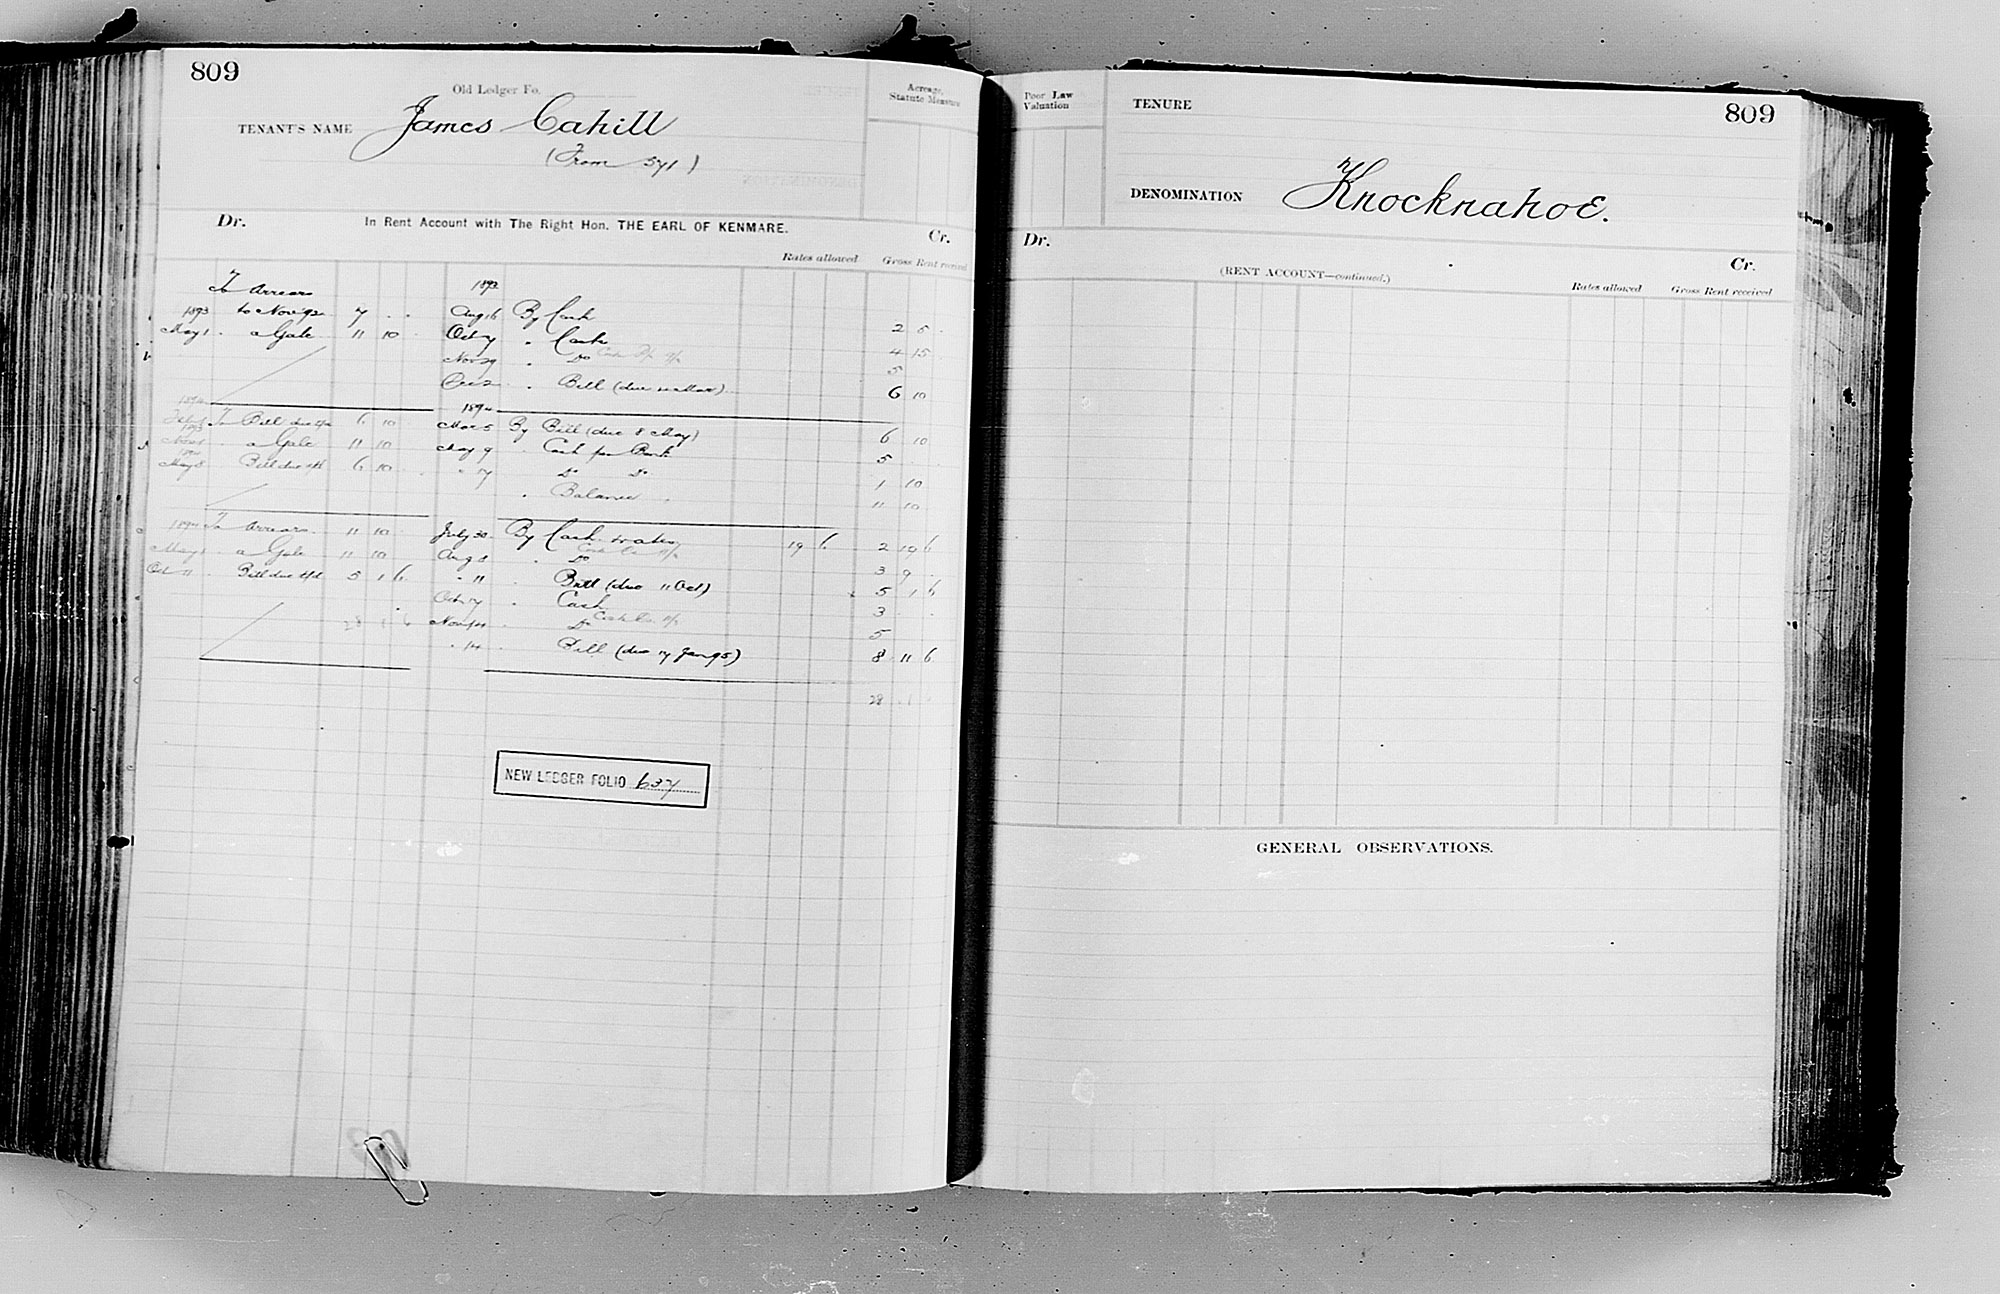 809
Old Ledger Fo.
TENANT'S NAME James Cahill
(From 571)
Acreage, Statute Measure
Dr. In Rent Account with The Right Hon. THE EARL OF KENMARE. Cr.
Rates allowed Gross Rent received
To Arrears
1893 to Nov 92 7 . . Aug 16 By Cash 2 5 .
May 1 . a Gale 11 10 Oct 7 . Cash 4 15
Nov 29 . Do 5
Dec 2 . Bill (due 6 10
1894 1894
To Bill due 6 10 Mar 5 By Bill (due 8 May) 6 10
1893
Nov 1 . a Gale 11 10 May 9 . Cash per Bank 5
1894
May 8 Bill due 6 10 . " 17 Do Do 1 10
. Balance . 11 10
1894 To Arrears 11 10 July 30 By Cash & rates 19 6 2 19 6
May 1 a Gale 11 10 Aug 8 . Do 3 9 .
Oct 11 . Bill due 5 1 6 " 11 . Bill (due 11 Oct) 5 1 6
Oct 17 . Cash 3 . .
28 1 6 Nov 14 . Do 5
" 14 . Bill (due 17 Jan 95) 8 11 6
28 1
NEW LEDGER FOLIO 637
Poor Law Valuation
TENURE 809
DENOMINATION Knocknahoe.
Dr. Cr.
(RENT ACCOUNT—continued.)
Rates allowed Gross Rent received
GENERAL OBSERVATIONS.